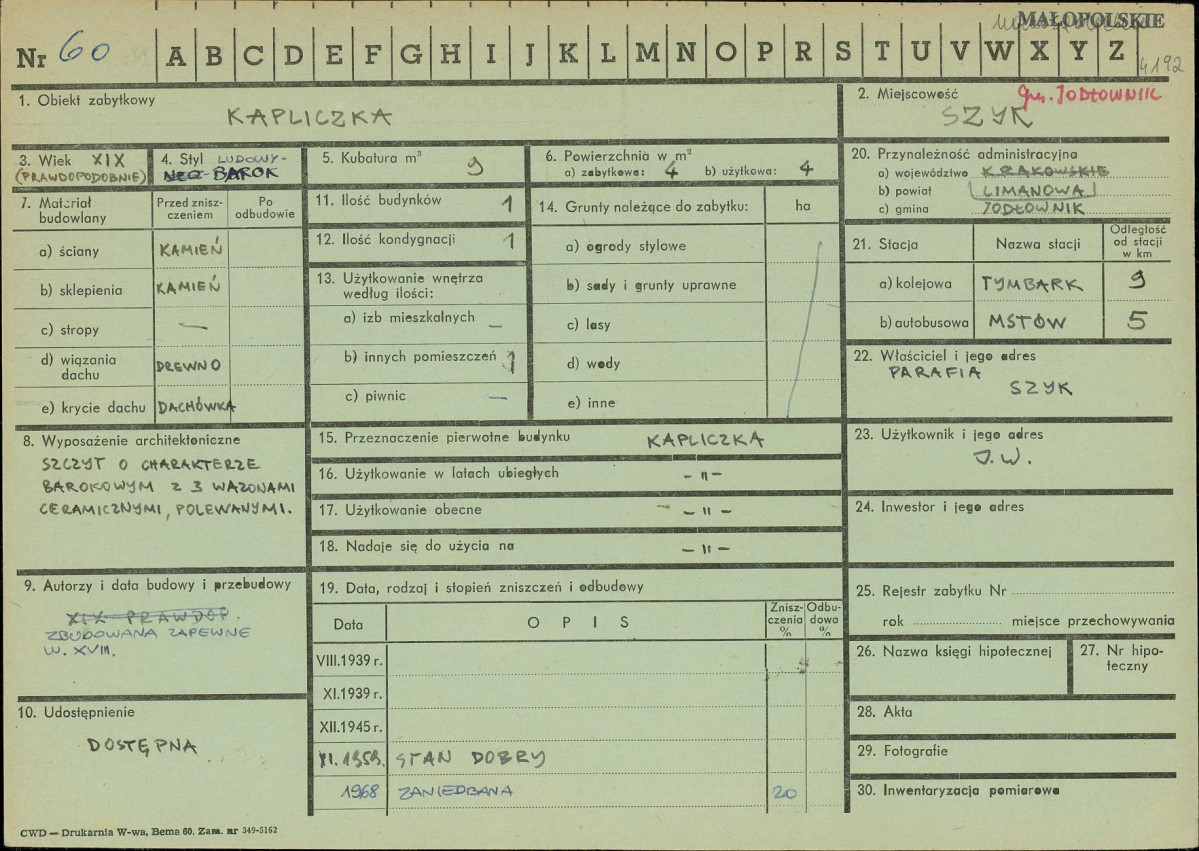 MAŁOPOLSKIE
Nr 60 A B C D E F G H I J K L M N O P R S T U V W X Y Z
4192
1. Obiekt zabytkowy
KAPLICZKA
2. Miejscowość
Gm. JODŁOWNIK
SZYK
3. Wiek XIX
(PRAWDOPODOBNIE)
4. Styl LUDOWY-
NEO-BAROK
5. Kubatura m³
9
6. Powierzchnia w m²
a) zabytkowa: 4 b) użytkowa: 4
20. Przynależność administracyjna
a) województwo KRAKOWSKIE
b) powiat LIMANOWA
c) gmina JODŁOWNIK
7. Materiał budowlany
Przed znisz-
czeniem
Po
odbudowie
a) ściany KAMIEŃ
b) sklepienia KAMIEŃ
c) stropy —
d) wiązania
dachu DREWNO
e) krycie dachu DACHÓWKA
11. Ilość budynków 1
12. Ilość kondygnacji 1
13. Użytkowanie wnętrza
według ilości:
a) izb mieszkalnych —
b) innych pomieszczeń 1
c) piwnic —
14. Grunty należące do zabytku: ha
a) ogrody stylowe
b) sady i grunty uprawne
c) lasy
d) wody
e) inne
21. Stacja
Nazwa stacji
Odległość
od stacji
w km
a) kolejowa TYMBARK 9
b) autobusowa MSTÓW 5
22. Właściciel i jego adres
PARAFIA
SZYK
8. Wyposażenie architektoniczne
SZCZYT O CHARAKTERZE
BAROKOWYM Z 3 WAZONAMI
CERAMICZNYMI, POLEWANYMI.
15. Przeznaczenie pierwotne budynku KAPLICZKA
16. Użytkowanie w latach ubiegłych - " -
17. Użytkowanie obecne - " -
18. Nadaje się do użycia na - " -
23. Użytkownik i jego adres
J.W.
24. Inwestor i jego adres
9. Autorzy i data budowy i przebudowy
XIX PRAWDOP.
ZBUDOWANA ZAPEWNE
W. XVIII.
19. Data, rodzaj i stopień zniszczeń i odbudowy
Data
O P I S
Znisz-
czenia
%
Odbu-
dowa
%
VIII.1939 r.
XI.1939 r.
XII.1945 r.
XI. 1959. STAN DOBRY
1968 ZANIEDBANA 20
25. Rejestr zabytku Nr
rok miejsce przechowywania
26. Nazwa księgi hipotecznej
27. Nr hipo-
teczny
10. Udostępnienie
DOSTĘPNA
28. Akta
29. Fotografie
30. Inwentaryzacja pomiarowa
CWD — Drukarnia W-wa, Bema 60. Zam. nr 349-5162